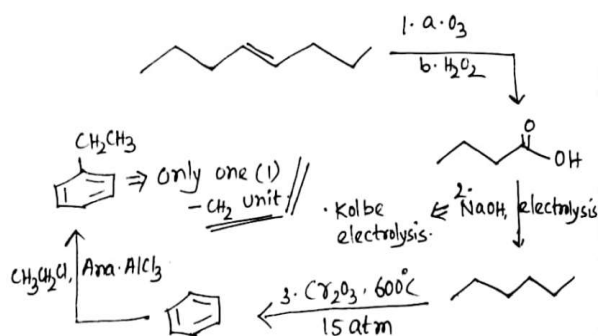 1. a. O3
b. H2O2
O
OH
2.
NaOH, electrolysis
⇐
· Kolbe
electrolysis.
3. Cr2O3. 600°C
15 atm
CH3CH2Cl, Ana. AlCl3
CH2CH3
⇒ only one (1)
- CH2 unit.